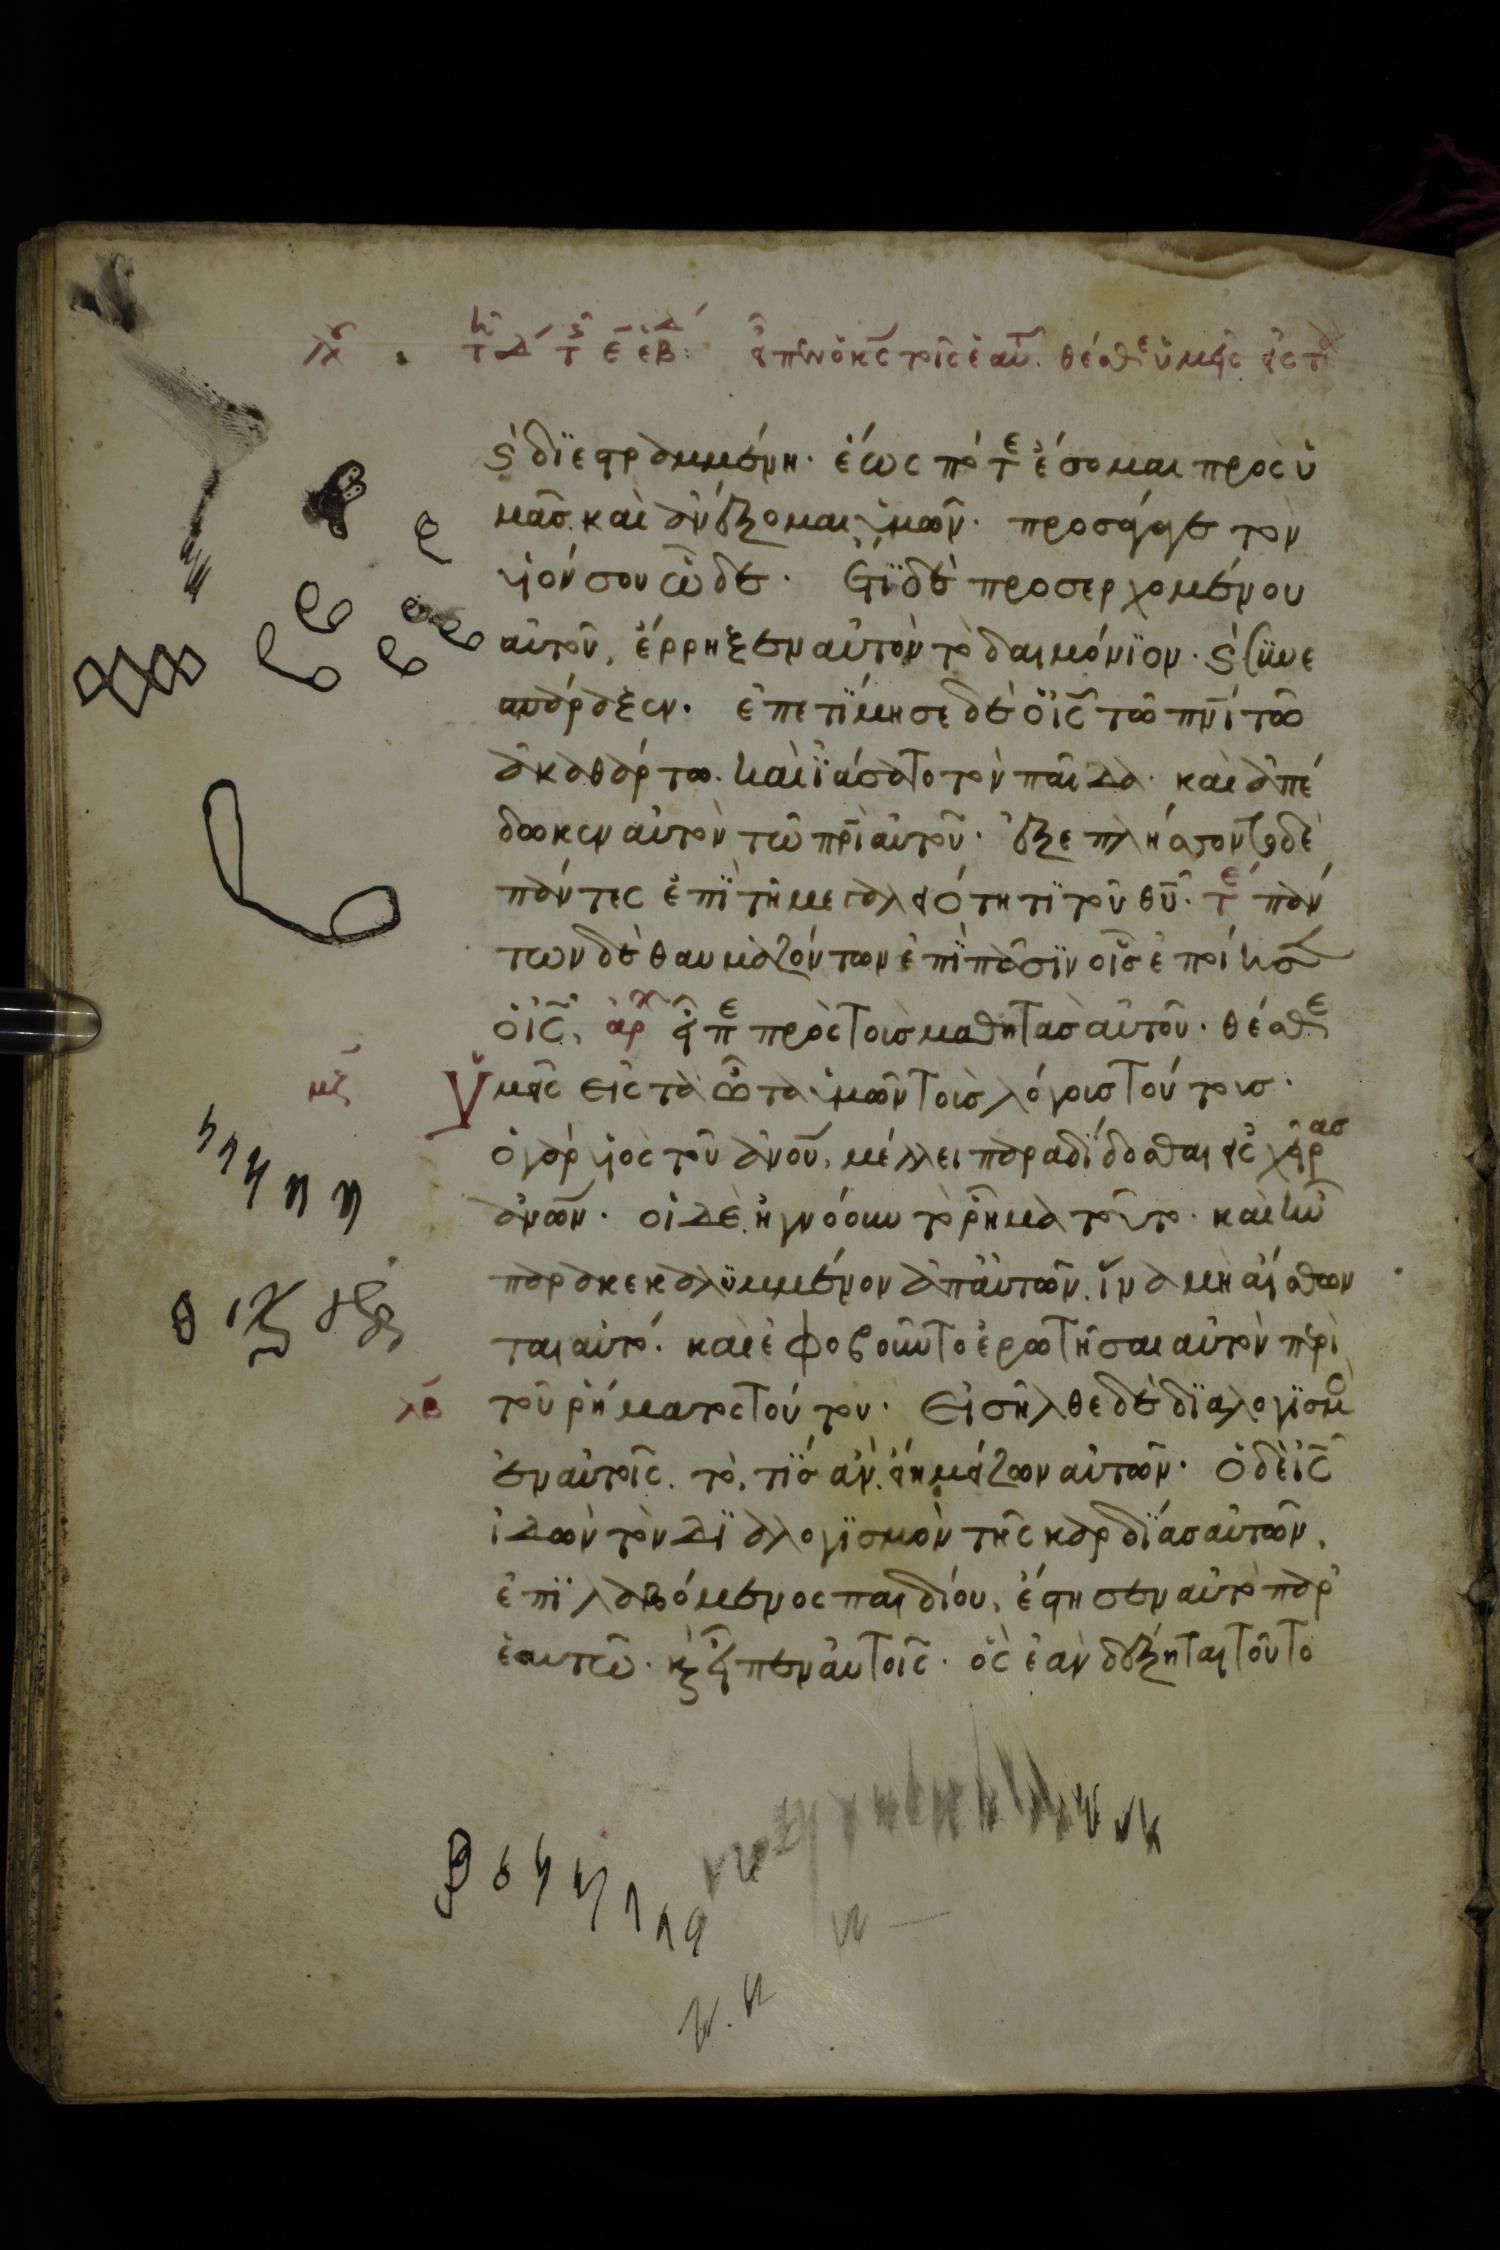 εἶπεν ὁ κς τοῖς ἑαυ. θέσθε ὑμεῖς εἰς τ
ϛ διεστραμμένη· ἕως πότε ἔσομαι πρὸς ὑ
μᾶς. καὶ ἀνέξομαι ὑμῶν· προσάγαγε τὸν
υἱόν σου ὧδε· Ἔτι δὲ προσερχομένου
αὐτοῦ, ἔρρηξεν αὐτὸν τὸ δαιμόνιον· ϛ συνε
σπάραξεν. ἐπετίμησε δὲ ὁ ις τῶ πνι τῶ
ἀκαθάρτω. καὶ ἰάσατο τὸν παῖδα. καὶ ἀπέ
δωκεν αὐτὸν τῶ πρι αὐτοῦ· ἐξεπλήσσοντο δὲ
πάντες ἐπὶ τῆ μεγαλειότητι τοῦ θυ. τε πάν
των δὲ θαυμαζόντων ἐπὶ πᾶσιν οἷς ἐποίησεν
ὁ ις, ἀρχ εἶπε πρὸς τοὺς μαθητὰς αὐτοῦ· θέσθε
μζ ὑμεῖς εἰς τὰ ὦτα ὑμῶν τοὺς λόγους τούτους.
ὁ γὰρ υἱὸς τοῦ ανου, μέλλει παραδίδοσθαι εἰς χεῖρας
ανων. οἱ δὲ ἠγνόουν τὸ ῥῆμα τοῦτο. καὶ ἦν
παρακεκαλυμμένον ἀπ' αὐτῶν. ἵνα μὴ αἴσθων
ται αὐτό. καὶ ἐφοβοῦντο ἐρωτῆσαι αὐτὸν περὶ
τοῦ ῥήματος τούτου. Εἰσῆλθε δὲ διαλογισμὸ
ἐν αὐτοῖς. τὸ, τίς ἂν εἴη μείζων αὐτῶν. ὁ δὲ ις
ἰδὼν τὸν διαλογισμὸν τῆς καρδίας αὐτῶν,
ἐπιλαβόμενος παιδίου, ἔστησεν αὐτὸ παρ'
ἑαυτῶ. κ εἶπεν αὐτοῖς. ὃς ἐὰν δέξηται τοῦτο